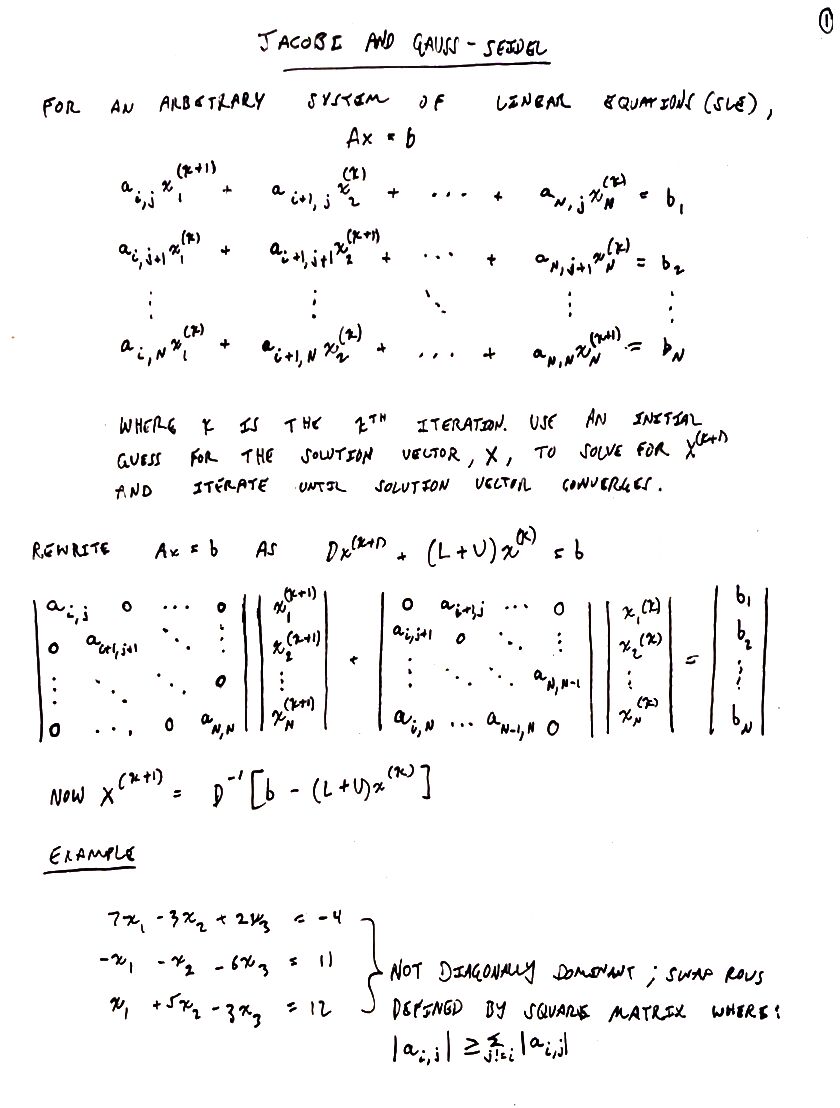 ①
JACOBI AND GAUSS-SEIDEL
FOR AN ARBITRARY SYSTEM OF LINEAR EQUATIONS (SLE),
Ax = b
a_{i,j} x_1^{(k+1)} + a_{i+1,j} x_2^{(k)} + ... + a_{N,j} x_N^{(k)} = b_1
a_{i,j+1} x_1^{(k)} + a_{i+1,j+1} x_2^{(k+1)} + ... + a_{N,j+1} x_N^{(k)} = b_2
⋮ ⋮ ⋱ ⋮ ⋮
a_{i,N} x_1^{(k)} + a_{i+1,N} x_2^{(k)} + ... + a_{N,N} x_N^{(k+1)} = b_N
WHERE k IS THE kTH ITERATION. USE AN INITIAL
GUESS FOR THE SOLUTION VECTOR, X, TO SOLVE FOR X^{(k+1)}
AND ITERATE UNTIL SOLUTION VECTOR CONVERGES.
REWRITE Ax = b AS Dx^{(k+1)} + (L+U)x^{(k)} = b
| a_{i,j} 0 ... 0 | | x_1^{(k+1)} | | 0 a_{i+1,j} ... 0 | | x_1^{(k)} | | b_1 |
| 0 a_{i+1,j+1} ⋱ ⋮ | | x_2^{(k+1)} | + | a_{i,j+1} 0 ⋱ ⋮ | | x_2^{(k)} | = | b_2 |
| ⋮ ⋱ ⋱ 0 | | ⋮ | | ⋮ ⋱ ⋱ a_{N,N-1} | | ⋮ | | ⋮ |
| 0 ... 0 a_{N,N} | | x_N^{(k+1)} | | a_{i,N} ... a_{N-1,N} 0 | | x_N^{(k)} | | b_N |
NOW X^{(k+1)} = D^{-1}[b - (L+U)x^{(k)}]
EXAMPLE
7x_1 - 3x_2 + 2x_3 = -4
-x_1 - x_2 - 6x_3 = 11
x_1 + 5x_2 - 3x_3 = 12
NOT DIAGONALLY DOMINANT; SWAP ROWS
DEFINED BY SQUARE MATRIX WHERE:
|a_{i,j}| ≥ Σ_{j!=i} |a_{i,j}|